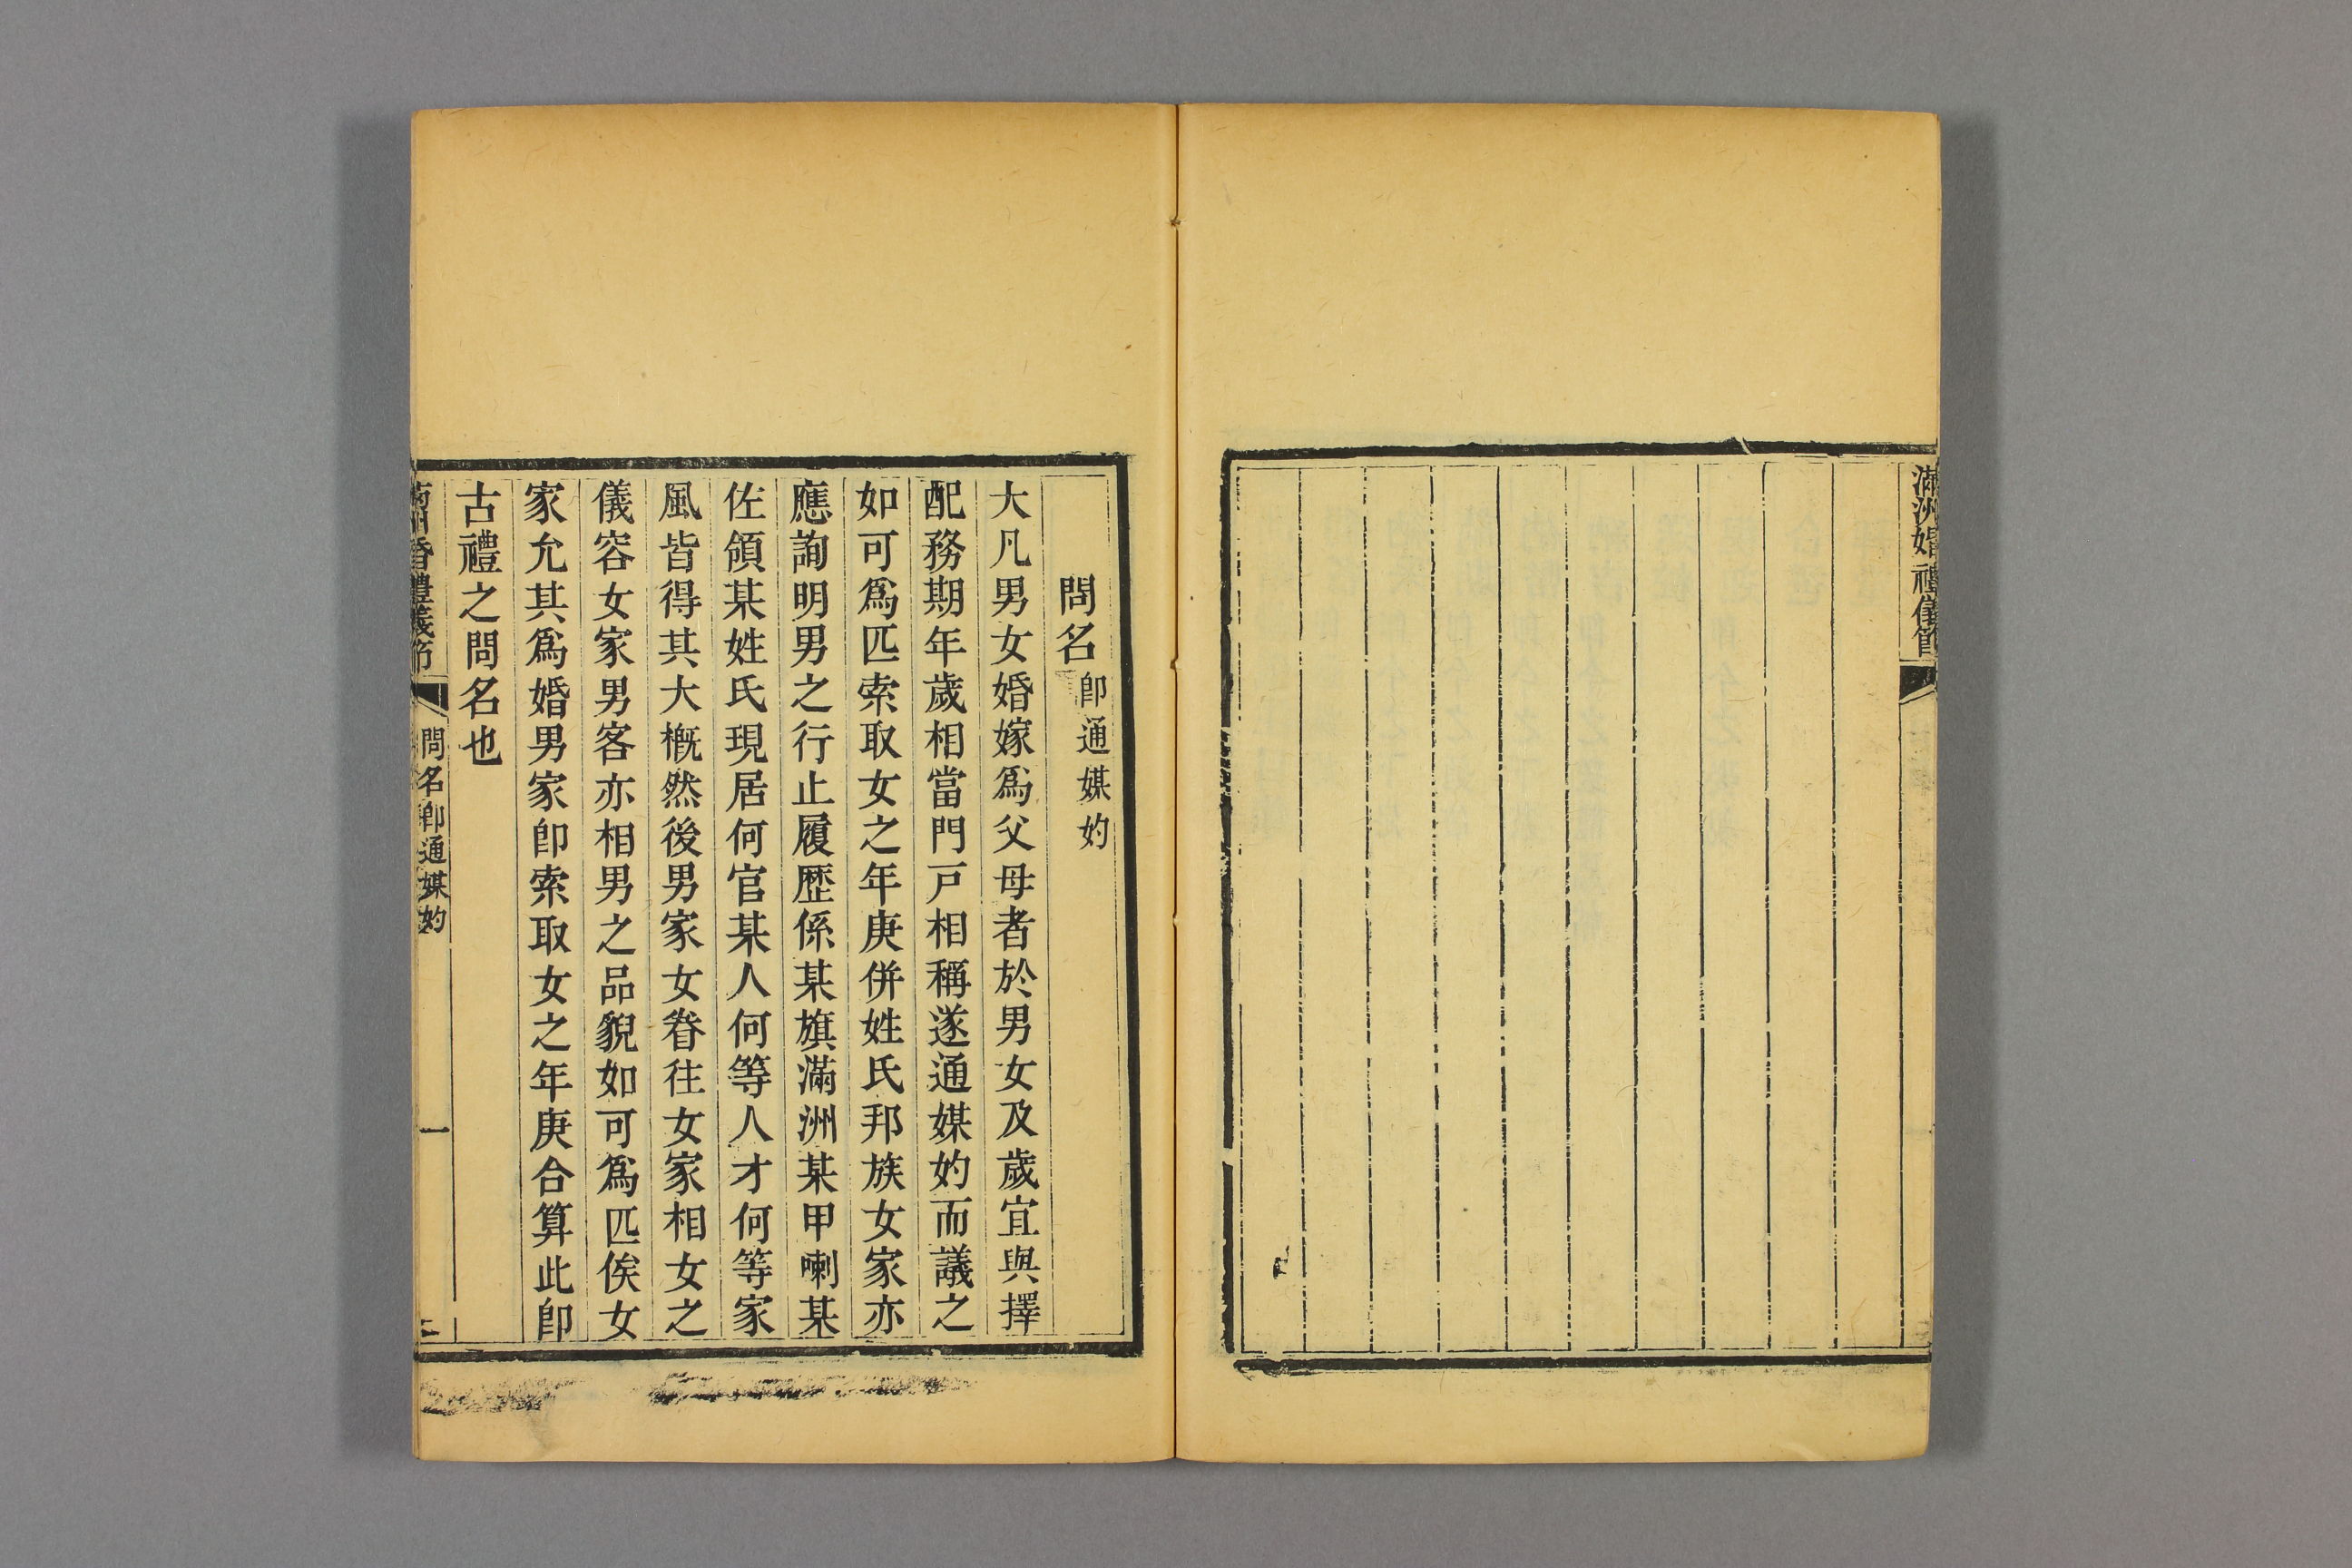 滿洲婚禮儀節
問名即通媒妁
大凡男女婚嫁爲父母者於男女及歲宜與擇
配務期年歲相當門戸相稱遂通媒妁而議之
如可爲匹索取女之年庚併姓氏邦族女家亦
應詢明男之行止履歷係某旗滿洲某甲喇某
佐領某姓氏現居何官某人何等人才何等家
風皆得其大概然後男家女眷往女家相女之
儀容女家男客亦相男之品貌如可爲匹俟女
家允其爲婚男家即索取女之年庚合算此即
古禮之問名也
滿洲婚禮儀節 問名即通媒妁 一